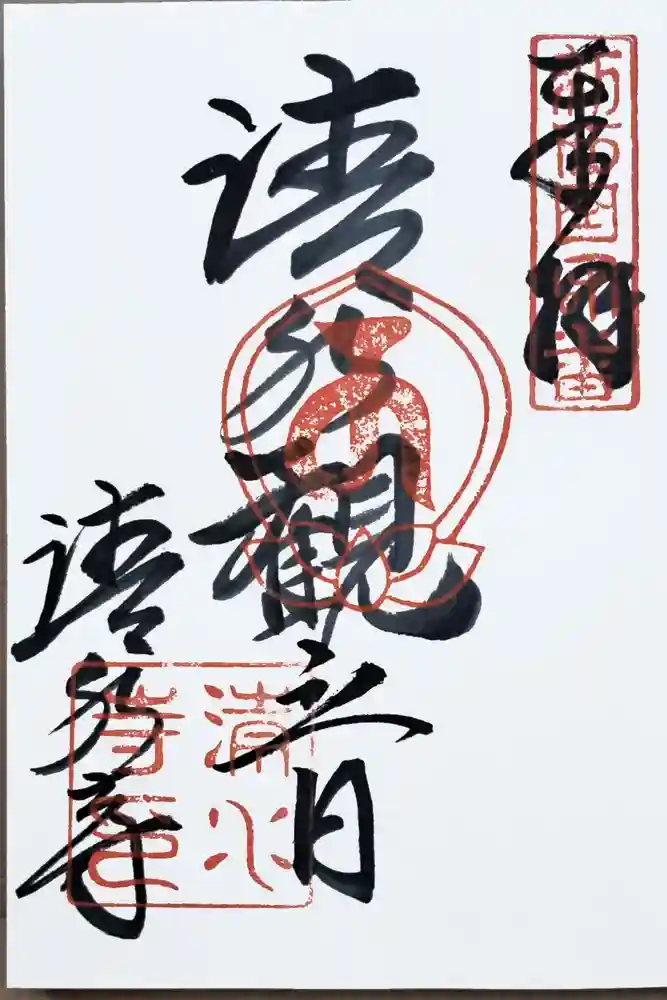 奉拝
清水観音
清水寺
清水
寺印